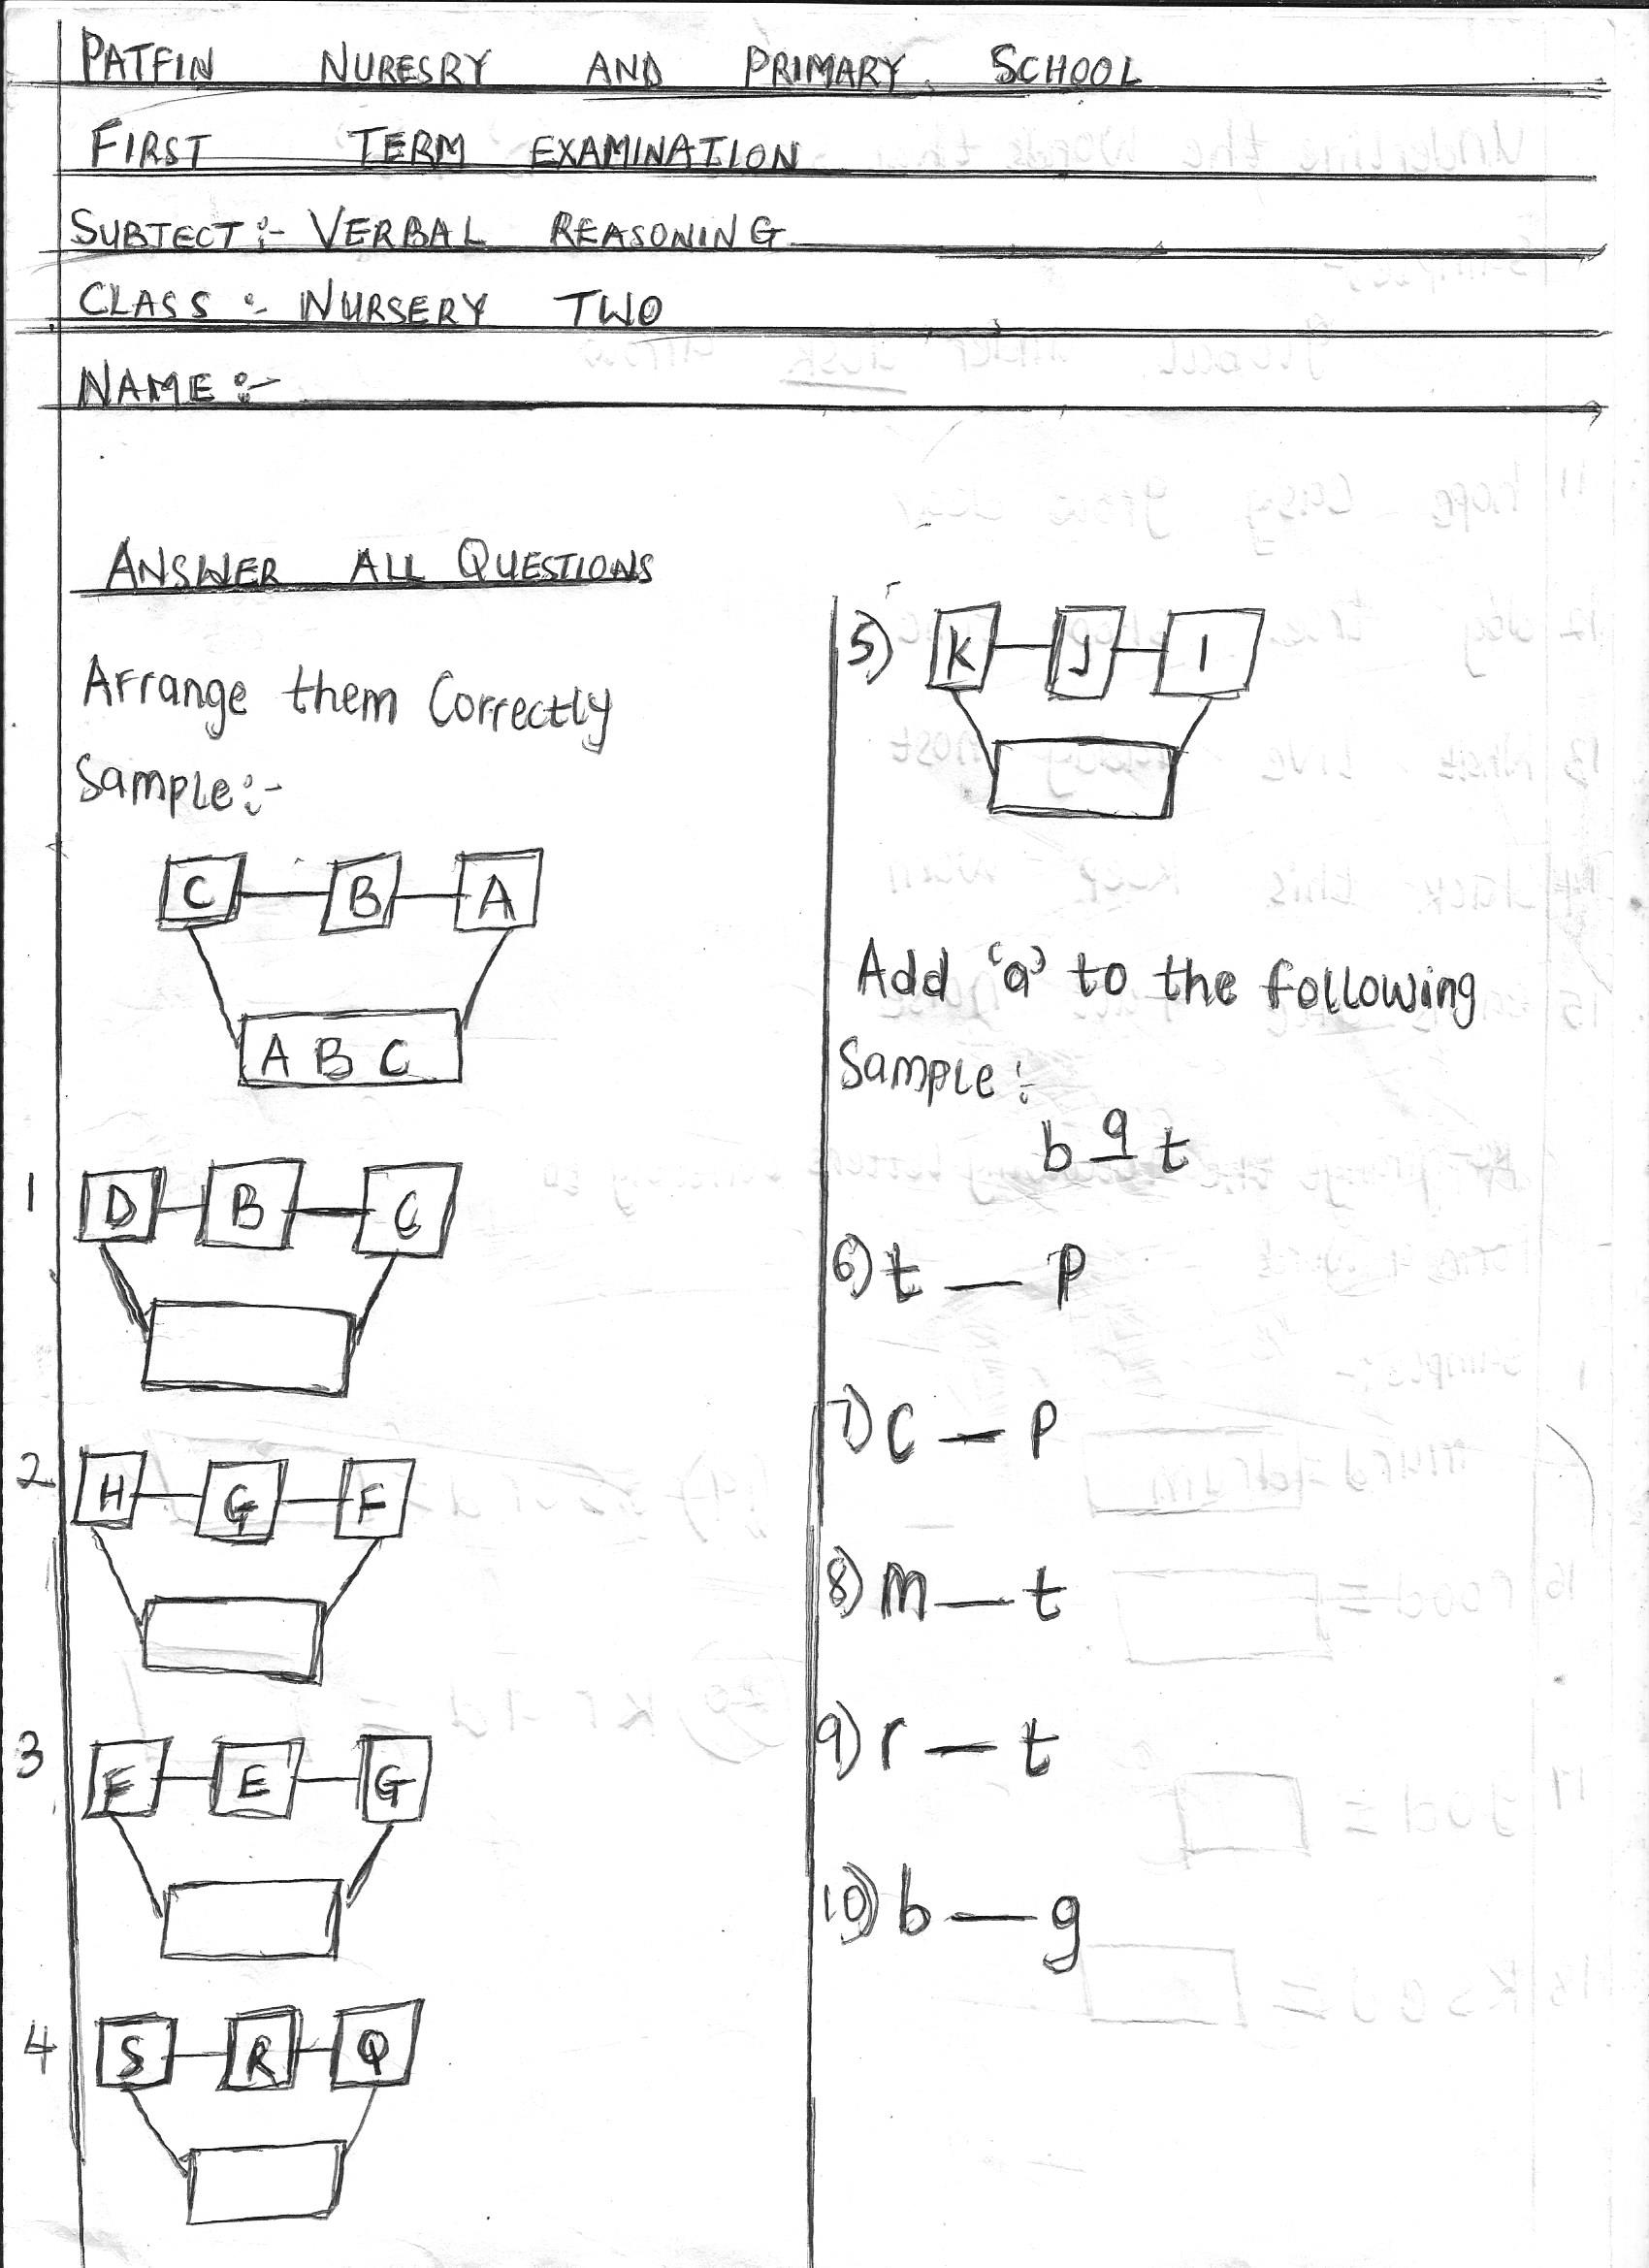 PATFIN NURESRY AND PRIMARY SCHOOL
FIRST TERM EXAMINATION
SUBJECT:- VERBAL REASONING
CLASS:- NURSERY TWO
NAME:-
ANSWER ALL QUESTIONS
Arrange them Correctly
Sample:-
C B A
A B C
1 D B C
2 H G F
3 F E G
4 S R Q
5) K J I
Add 'a' to the following
Sample:-
b a t
6) t — p
7) c — p
8) m — t
9) r — t
10) b — g